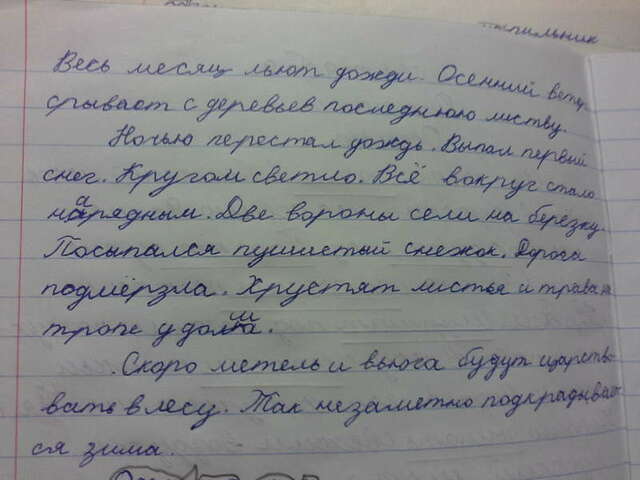 пильник
Весь месяц льют дожди. Осенний вету
срывает с деревьев последнюю листву.
Ночью перестал дождь. Выпал первый
снег. Кругом светло. Всё вокруг стало
нарядным. Две вороны сели на березку.
Посыпался пушистый снежок. Дорога
подмёрзла. Хрустят листья и трава на
тропе у дома.
Скоро метель и вьюга будут царство
вать в лесу. Так незаметно подкрадывает
ся зима.